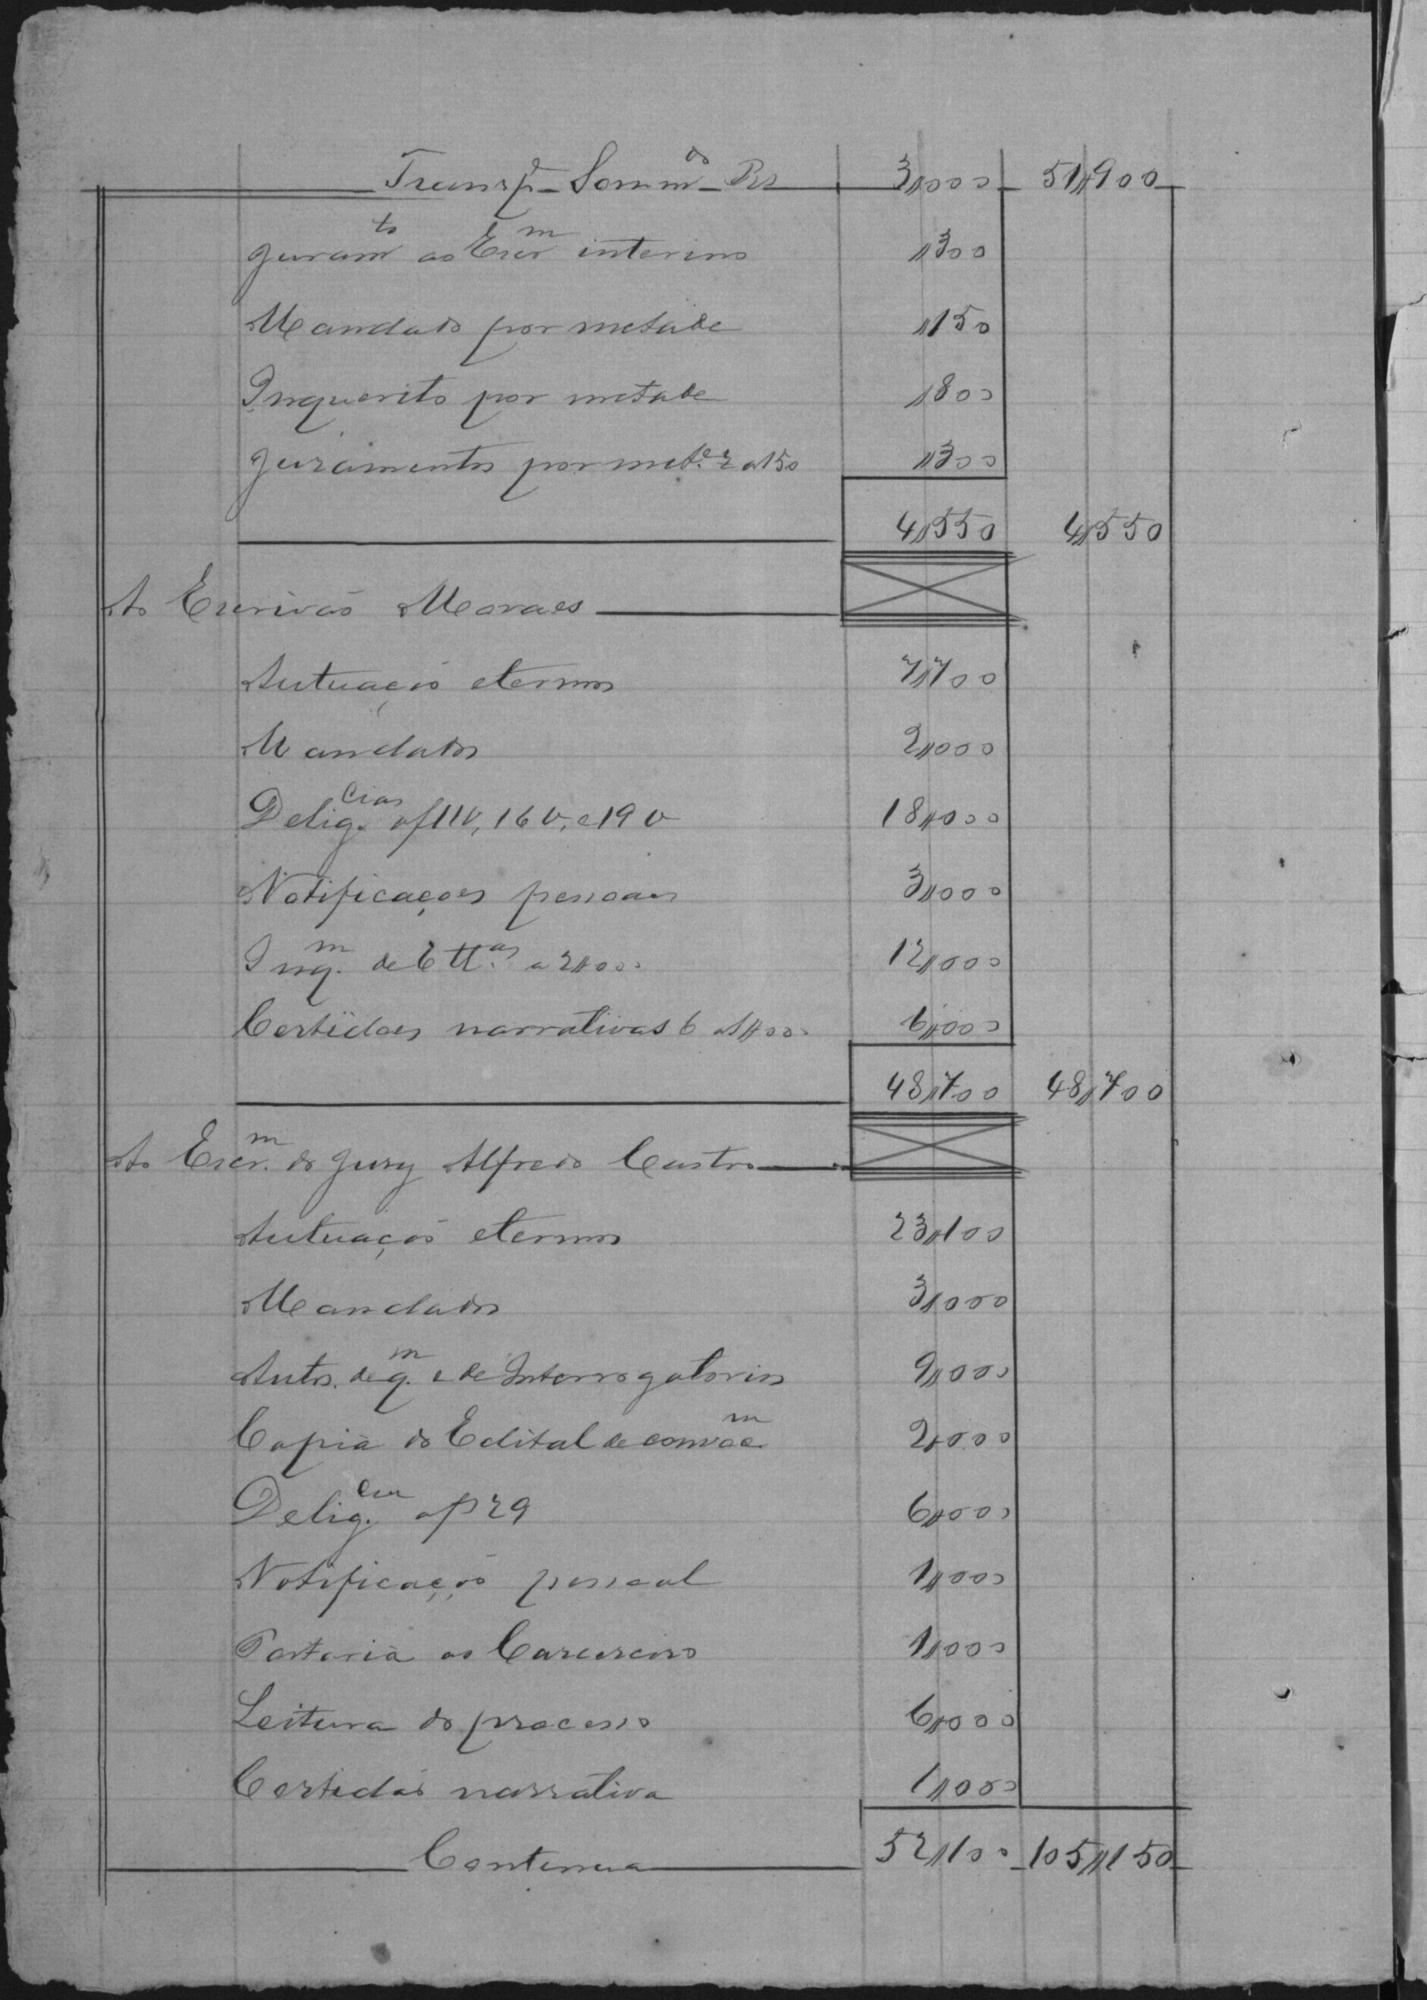 Transpe Sommdo Rs 3,,000 51,,900
Juramto ao Escrm interino ,,300
Mandado por metade ,,150
Inquerito por metade ,,800
Juramentos por mete. 2 a 150 ,,300
4,,550 4,,550
Ao Escrivaõ Moraes
Autuaçaõ e termos 7,,700
Mandados 2,,000
Delig.cias af 11v, 16v, e 19v 18,,000
Notificaçoes pessoaes 3,,000
Inq.m de 6 tt.as a 2,,000 12,,000
Certidoes narrativas 6 a 1,,000 6,,000
48,,700 48,,700
Ao Escr.m do Jury Alfredo Castro
Autuaçaõ e termos 23,,100
Mandados 3,,000
Autos. de q.m e de Interrogatorios 9,,000
Copia do Edital de convocm 2,,000
Delig.cia af 29 6,,000
Notificaçaõ pessoal 1,,000
Portaria ao Carcereiro 1,,000
Leitura do processo 6,,000
Certidaõ narrativa 1,,000
Continua 52,,100 105,,150